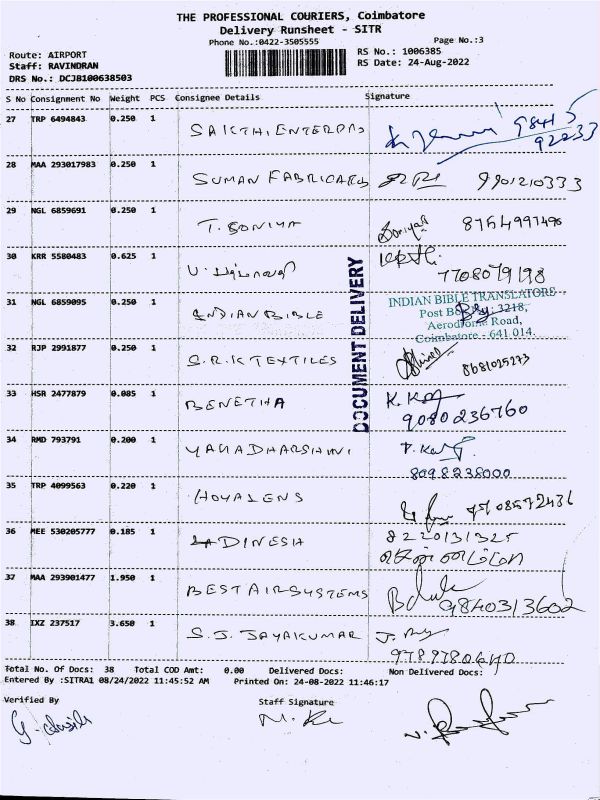 THE PROFESSIONAL COURIERS, Coimbatore
Delivery Runsheet - SITR
Phone No.:0422-3505555
Page No.:3
Route: AIRPORT
Staff: RAVINDRAN
DRS No.: DCJB100638503
RS No.: 1006385
RS Date: 24-Aug-2022
S No Consignment No Weight PCS Consignee Details Signature
27 TRP 6494843 0.250 1 SAKTHI ENTERPRS 98415
92233
28 MAA 293017983 0.250 1 SUMAN FABRICATES 9901210333
29 NGL 6859691 0.250 1 T. SONIYA Soniya 8754997496
30 KRR 5580483 0.625 1 7708079198
31 NGL 6859095 0.250 1 INDIAN BIBLE
INDIAN BIBLE TRANSLATORS
Post Box No: 3218,
Aerodrome Road,
Coimbatore - 641 014.
DOCUMENT DELIVERY
32 RJP 2991877 0.250 1 S.R.K TEXTILES 8681025273
33 HSR 2477879 0.085 1 BENETHA
9080236760
34 RMD 793791 0.200 1 YAGADHARSHINI
8098238000
35 TRP 4099563 0.220 1 HOYALENS
36 MEE 530205777 0.185 1 DINESH 8220131325
37 MAA 293901477 1.950 1 BEST AIRSYSTEMS 9840313602
38 IXZ 237517 3.650 1 S.J. JAYAKUMAR
9789780640
Total No. Of Docs: 38 Total COD Amt: 0.00 Delivered Docs: Non Delivered Docs:
Entered By :SITRA1 08/24/2022 11:45:52 AM Printed On: 24-08-2022 11:46:17
Verified By
Staff Signature